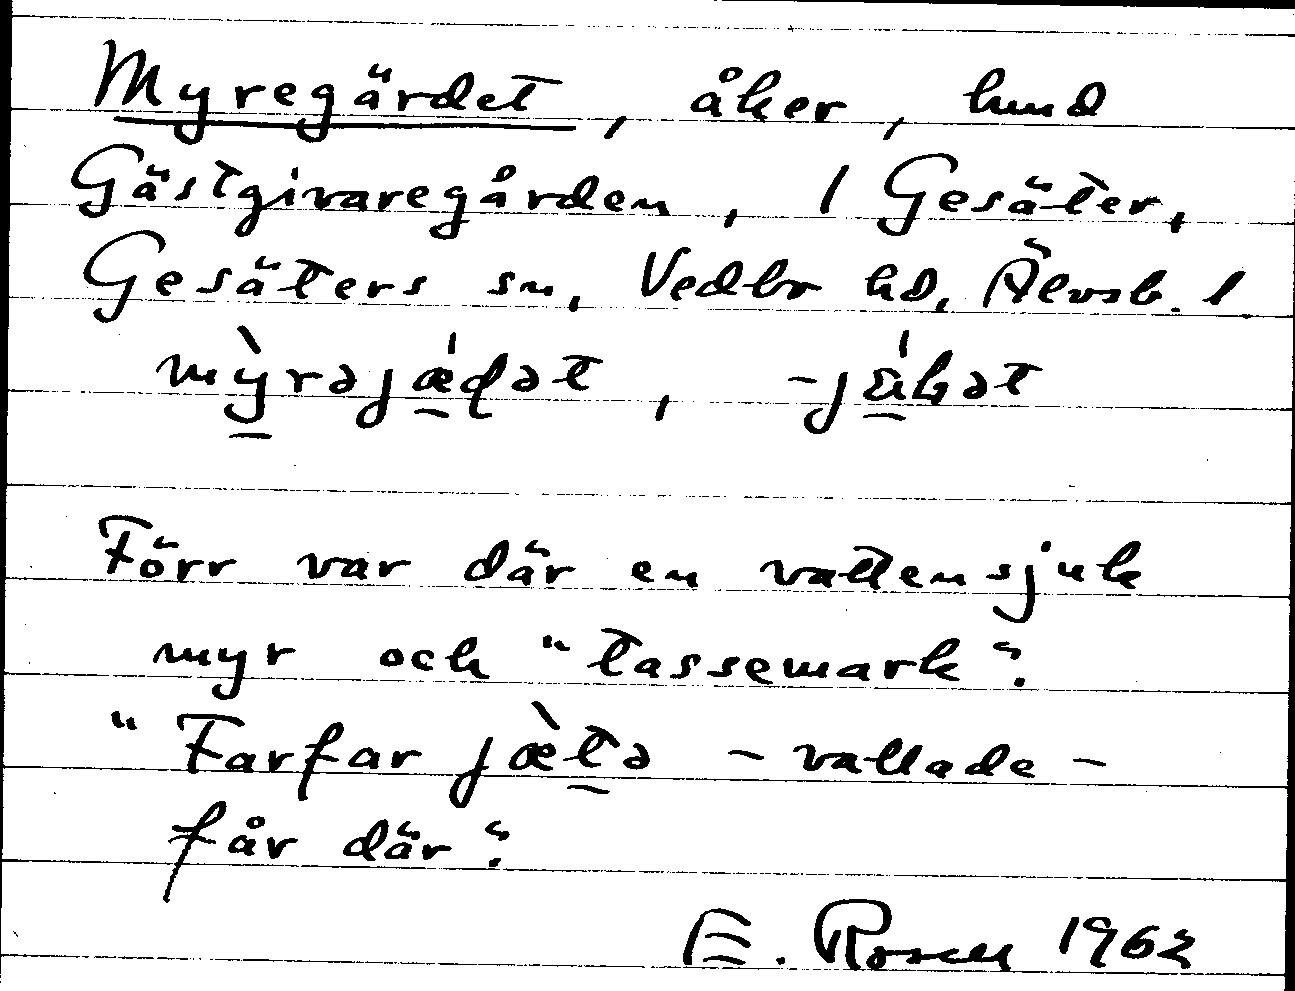 Myregärdet, åker, hmd
Gästgivaregården, 1 Gesäter,
Gesäters sn, Vedbo hd, Älvsb. l.
mỳrəjǽɖət, -jä́kət
Förr var där en vattensjuk
myr och "tassemark".
"Farfar jæ̀tə - vallade -
får där".
E. Rosell 1962